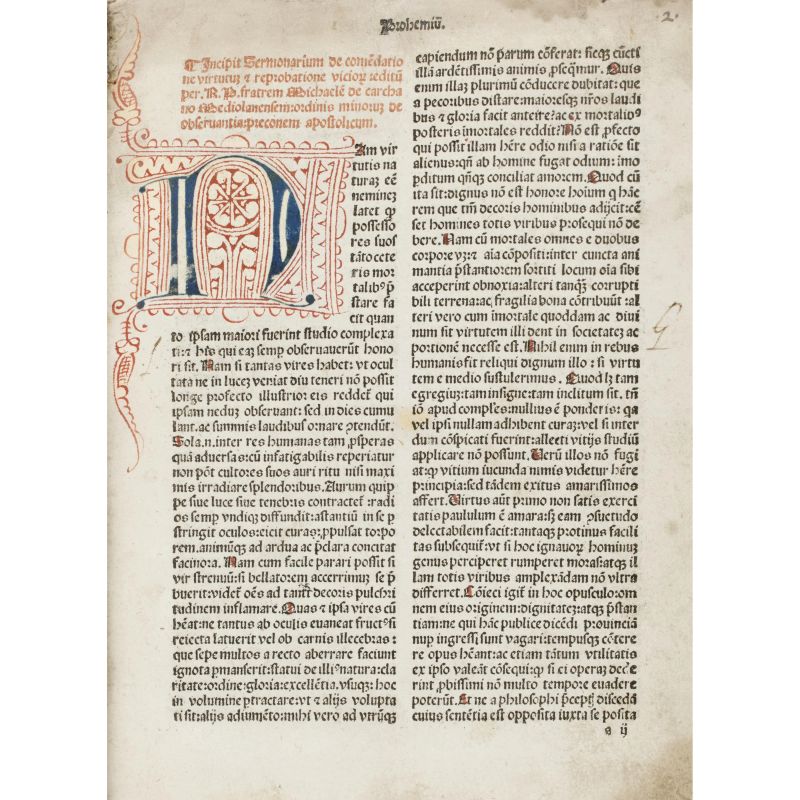 Prohemiū.
2.
¶ Incipit Sermonarium de comēdatio
ne virtutuȝ ⁊ reprobatione vicioꝝ :editū
per. R. P. fratrem Michaelē de carcha
no Mediolanensem:ordinis minoruȝ de
obseruantia:preconem apostolicum.
NAm vir
tutis na
turaȝ eē
nemineȝ
latet ꝙ
possesso
res suos
tāto cete
ris mor
talibꝰ p̄
stare fa
cit quan
to ipsam maiori fuerint studio complexa
ti:⁊ his qui eaȝ semꝑ obseruauerūt hono
ri sit. Nam si tantas vires habet: vt ocul
tata ne in luceȝ veniat diu teneri nō possit
longe profecto illustrioreis reddet qui
ipsam neduȝ obseruant: sed in dies cumu
lant. ac summis laudibus ornare ꝯtendūt.
Sola.n.inter res humanas tam ꝓsperas
quā aduersas:cū infatigabilis reperiatur
non pōt cultores suos auri ritu nisi maxi
mis irradiare splendoribus. Aurum quip
pe siue luce siue tenebris contractet :radi
os semꝑ vndiqȝ diffundit:astantiū in se p̄
stringit oculos:eicit curas:ꝓpulsat torpo
rem.animūqȝ ad ardua ac p̄clara concitat
facinora. Nam cum facile parari possit si
vir strenuū:si bellatorem accerrimuȝ se p̄
buerit:videt oēs ad tanti decoris pulchri
tudinem inflamare. Quas ⁊ ipsa vires cū
hēat:ne tantus ab oculis euaneat fructꝰ:si
reiecta latuerit vel ob carnis illecebras :
que sepe multos a recto aberrare faciunt
ignota p̄manserit:statui de illiꝰ natura:cla
ritate:ordine:gloria:excellētia.vsuqȝ: hoc
in volumine ꝑtractare:vt ⁊ alijs volupta
ti sit:alijs adiumēto:mihi vero ad vtrūqȝ
capiendum nō parum cōferat: sicqȝ cūcti
illā ardētissimis animis ꝓseqmur. Quis
enim illaȝ plurimū cōducere dubitat: que
a pecoribus distare:maioresqȝ nr̄os laudi
bus ⁊ gloria facit anteire?ac ex mortalibꝰ
posteris imortales reddit? Nō est ꝓfecto
qui possit illam hēre odio nisi a ratiōe sit
alienus:qn̄ ab homine fugat odium: imo
ꝑditum qn̄qȝ conciliat amorem. Quod cū
ita sit:dignus nō est honore hoīum q̄ hāc
rem que tm̄ decoris hominibus adijcit:cē
set homines totis viribus prosequi nō de
bere. Nam cū mortales omnes e duobus
corpore vȝ:⁊ aīa cōpositi:inter cuncta ani
mantia p̄stantiorem sortiti locum oīa sibi
acceperint obnoxia:alteri tanqȝ corrupti
bili terrena:ac fragilia bona cōtribuūt :al
teri vero cum imortale quoddam ac diui
num sit virtutem illi dent in societateȝ ac
portionē necesse est. Nihil enim in rebus
humanis fit reliqui dignum illo : si virtu
tem e medio sustulerimus . Quod lȝ tam
egregiuȝ:tam insigne:tam inclitum sit. tn̄
iō apud comples:nullius ē ponderis: qa
vel ipsi nullam adhibent curaȝ:vel si inter
dum cōspicati fuerint:allecti vitijs studiū
applicare nō possunt. Verū illos nō fugi
at:ꝙ vitium iucunda nimis videtur hēre
p̄ncipia:sed tādem exitus amarissimos
affert. Virtus aūt primo non satis exerci
tatis paululum ē amara:sȝ eam ꝯsuetudo
delectabilem facit:tantaqȝ protinus facili
tas subsequit:vt si hoc ignauoꝝ hominuȝ
genus perciperet rumperet moras:atqȝ il
lam totis viribus amplexādam nō vltra
differret. Cōieci igit in hoc opusculo:om
nem eius originem:dignitateȝ:atqȝ p̄stan
tiam:ne qui hāc publice dicēdi ꝓuinciā
nuꝑ ingressi sunt vagari:tempusqȝ cōtere
re opus hēant:ac etiam tātum vtilitatis
ex ipso valeāt cōsequi:ꝙ si ei operaȝ dede
rint ꝓbissimi nō multo tempore euadere
poterūt. Et ne a philosophi p̄cepti discedā
cuius sentētia est opposita iuxta se posita
a ij